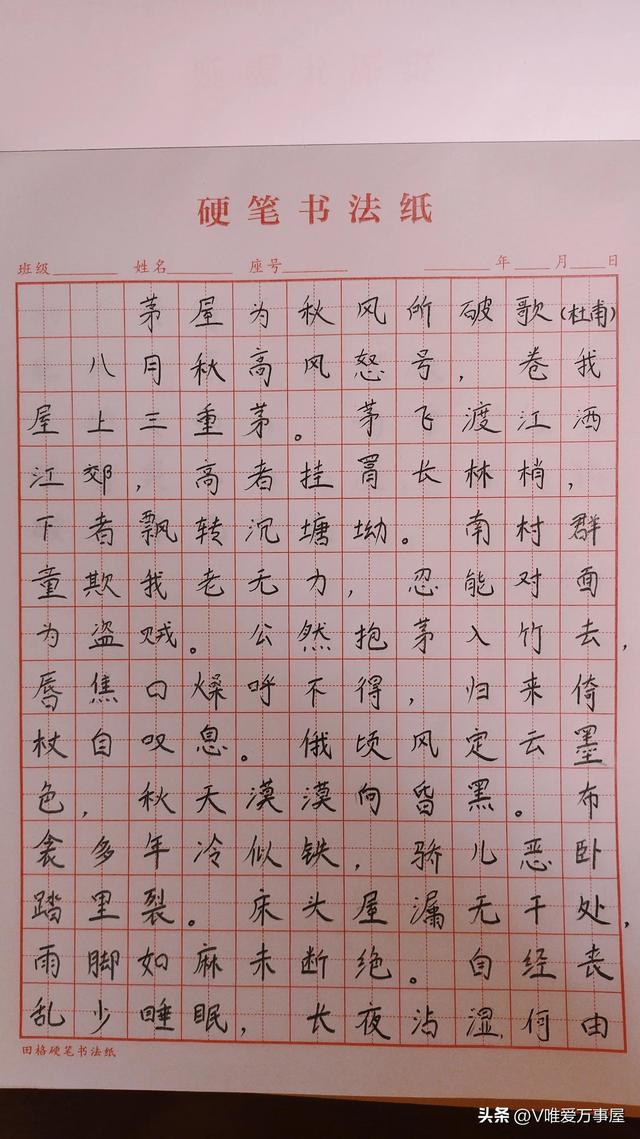 硬笔书法纸
班级 姓名 座号 年 月 日
茅屋为秋风所破歌(杜甫)
八月秋高风怒号，卷我
屋上三重茅。茅飞渡江洒
江郊，高者挂罥长林梢，
下者飘转沉塘坳。南村群
童欺我老无力，忍能对面
为盗贼。公然抱茅入竹去，
唇焦口燥呼不得，归来倚
杖自叹息。俄顷风定云墨
色，秋天漠漠向昏黑。布
衾多年冷似铁，骄儿恶卧
踏里裂。床头屋漏无干处，
雨脚如麻未断绝。自经丧
乱少睡眠，长夜沾湿何由
田格硬笔书法纸
头条@V唯爱万事屋